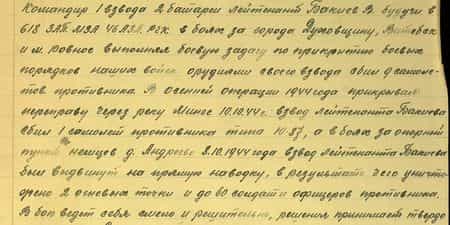 Командир 1 взвода 2 батареи лейтенант Бакиев В. будучи в
618 ЗАП МЗА 46 АЗА РГК в боях за города Духовщину, Витебск
и м. Ровное выполняя боевую задачу по прикрытию боевых
порядков наших войск орудиями своего взвода сбил 9 самоле-
тов противника. В осенней операции 1944 года прикрывая
переправу через реку Минге 10.10.44 г. взвод лейтенанта Бакиева
сбил 1 самолет противника типа Ю-87, а в боях за опорный
пункт немцев д. 8.10.1944 года взвод лейтенанта Бакиева
был выдвинут на прямую наводку, в результате чего уничто-
жено 2 огневых точки и до 60 солдат и офицеров противника.
В бою ведет себя смело и решительно, решения принимает твердо